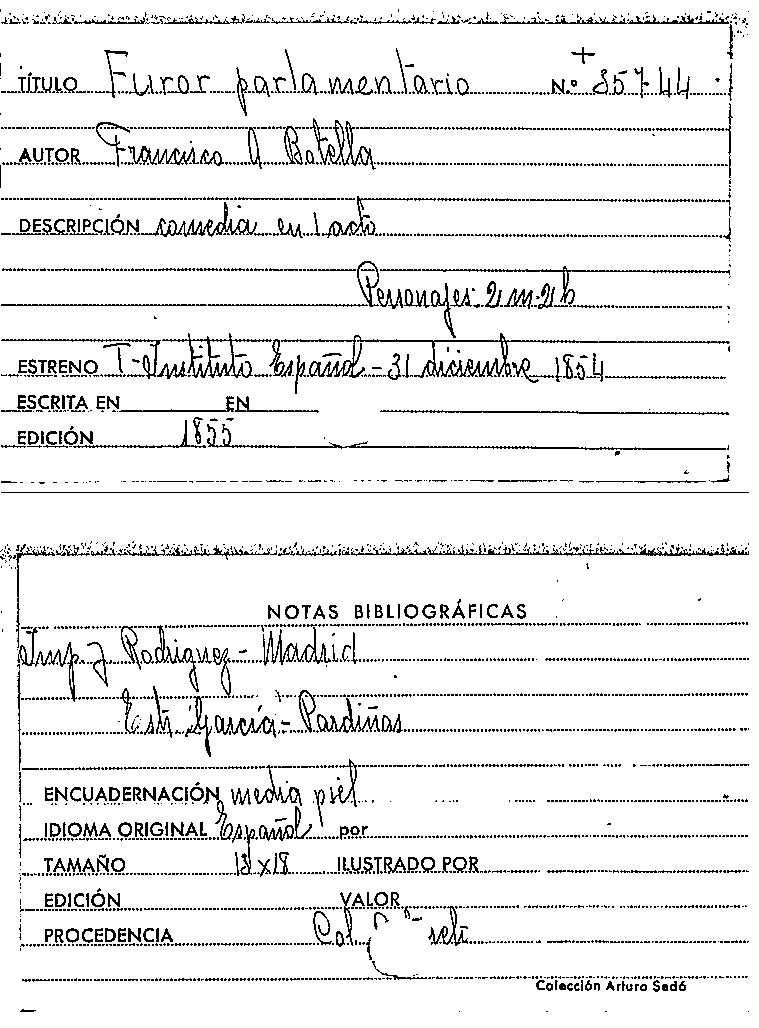 TÍTULO Furor parlamentario N.º 85744
AUTOR Francisco A Botella
DESCRIPCIÓN comedia en 1 acto
Personajes 2 m-2 h
ESTRENO T-Instituto Español-31 diciembre 1854
ESCRITA EN EN
EDICIÓN 1855
NOTAS BIBLIOGRÁFICAS
Imp J Rodriguez-Madrid
Estr. García-Pardiñas
ENCUADERNACIÓN media piel
IDIOMA ORIGINAL Español por
TAMAÑO x18 ILUSTRADO POR
EDICIÓN VALOR
PROCEDENCIA Col
Colección Arturo Sedó